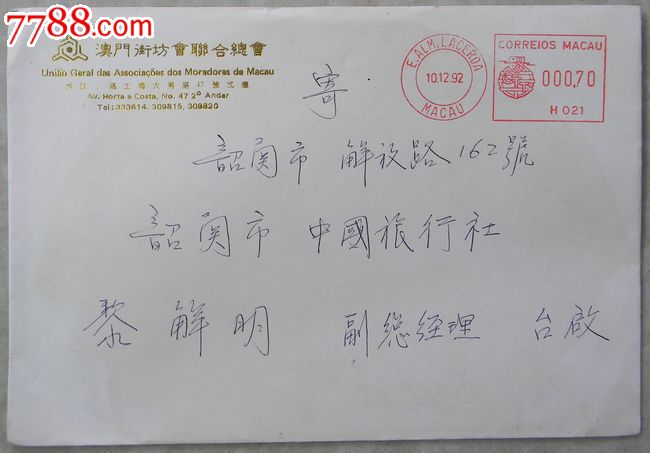 7788.com
澳門街坊會聯合總會
União Geral das Associações dos Moradores de Macau
澳門高士德大馬路47號弍樓
Av. Horta e Costa, No. 47 2º Andar
Tel: 333614, 309815, 309820
E. ALM. LACERDA
10.12.92
MACAU
CORREIOS MACAU
000,70
H 021
寄
韶関市 解放路162號
韶関市 中國旅行社
黎解明 副總經理 台啟